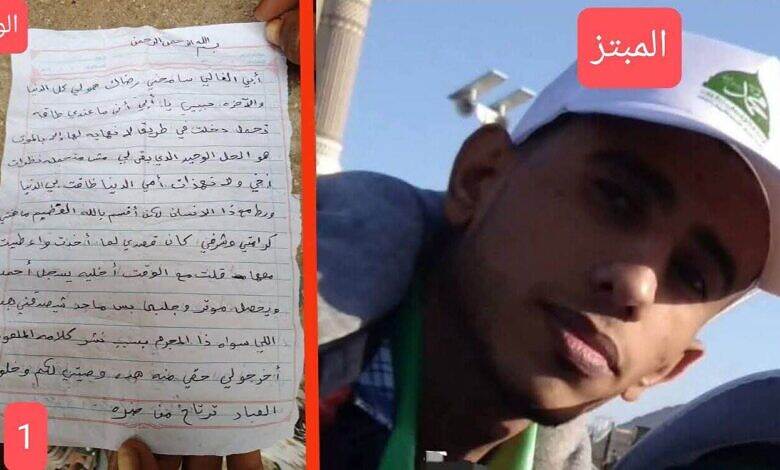 بسم الله الرحمن الرحيم
أبي الغالي سامحني رضاك هو لي كل الدنيا
والآخره حبيبي يا أبي أنا ما عندي طاقه
تحمل دخلت في طريق لا نهايه لها إلا بالموت
هو الحل الوحيد الذي بقى لي مش متحمله نظرات
أخي ولا أمي الدنيا ضاقت بي الدنيا
ذا الإنسان لكن أقسم بالله العظيم
كرامتي وشرفي كان قصدي لما أخذت وأعطيت
معها قلت مع الوقت أخليه يسجل
ويحصل موتر وجلسه بس ماحد شيصدقني
اللي سواه ذا المجرم بسبب نشر كلامه
أخرجولي حقي منه هذه وصيتي لكم وخلو
العباد ترتاح من ضره
1
المبتز